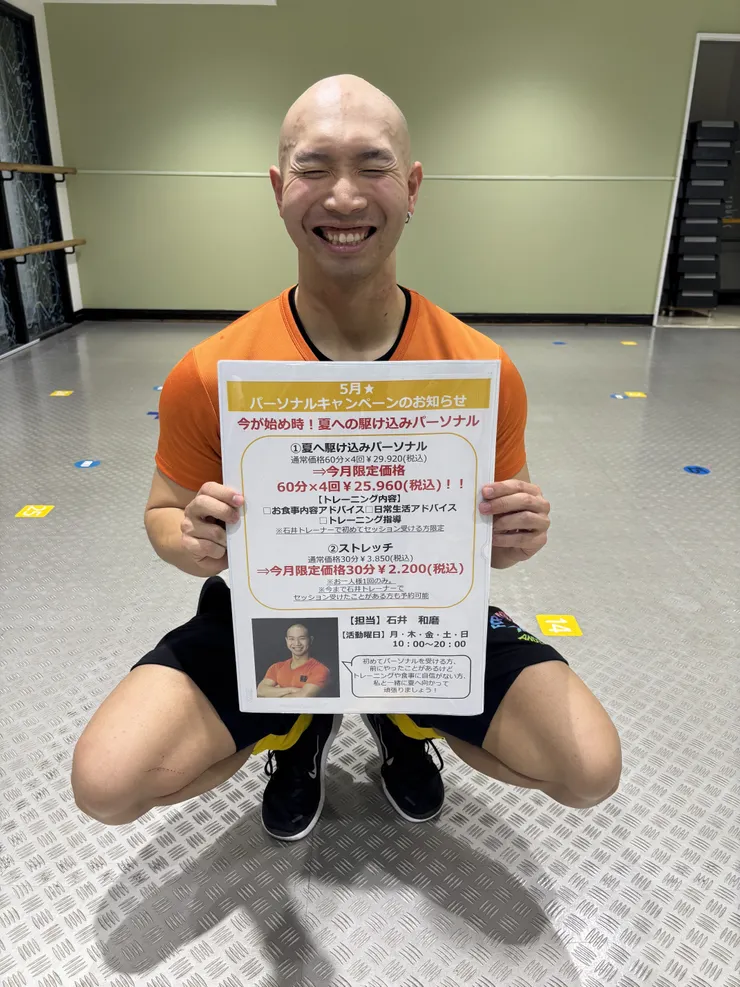 5月★
パーソナルキャンペーンのお知らせ
今が始め時！夏への駆け込みパーソナル
①夏へ駆け込みパーソナル
通常価格60分×4回￥29.920(税込)
⇒今月限定価格
60分×4回￥25.960(税込)！！
【トレーニング内容】
□お食事内容アドバイス□日常生活アドバイス
□トレーニング指導
※石井トレーナーで初めてセッション受ける方限定
②ストレッチ
通常価格30分￥3.850(税込)
⇒今月限定価格30分￥2.200(税込)
※お一人様1回のみ。
※今まで石井トレーナーで
セッション受けたことがある方も予約可能
【担当】石井　和磨
【活動曜日】月・木・金・土・日
10：00～20：00
初めてパーソナルを受ける方、
前にやったことがあるけど
トレーニングや食事に自信がない方、
私と一緒に夏へ向かって
頑張りましょう！
14